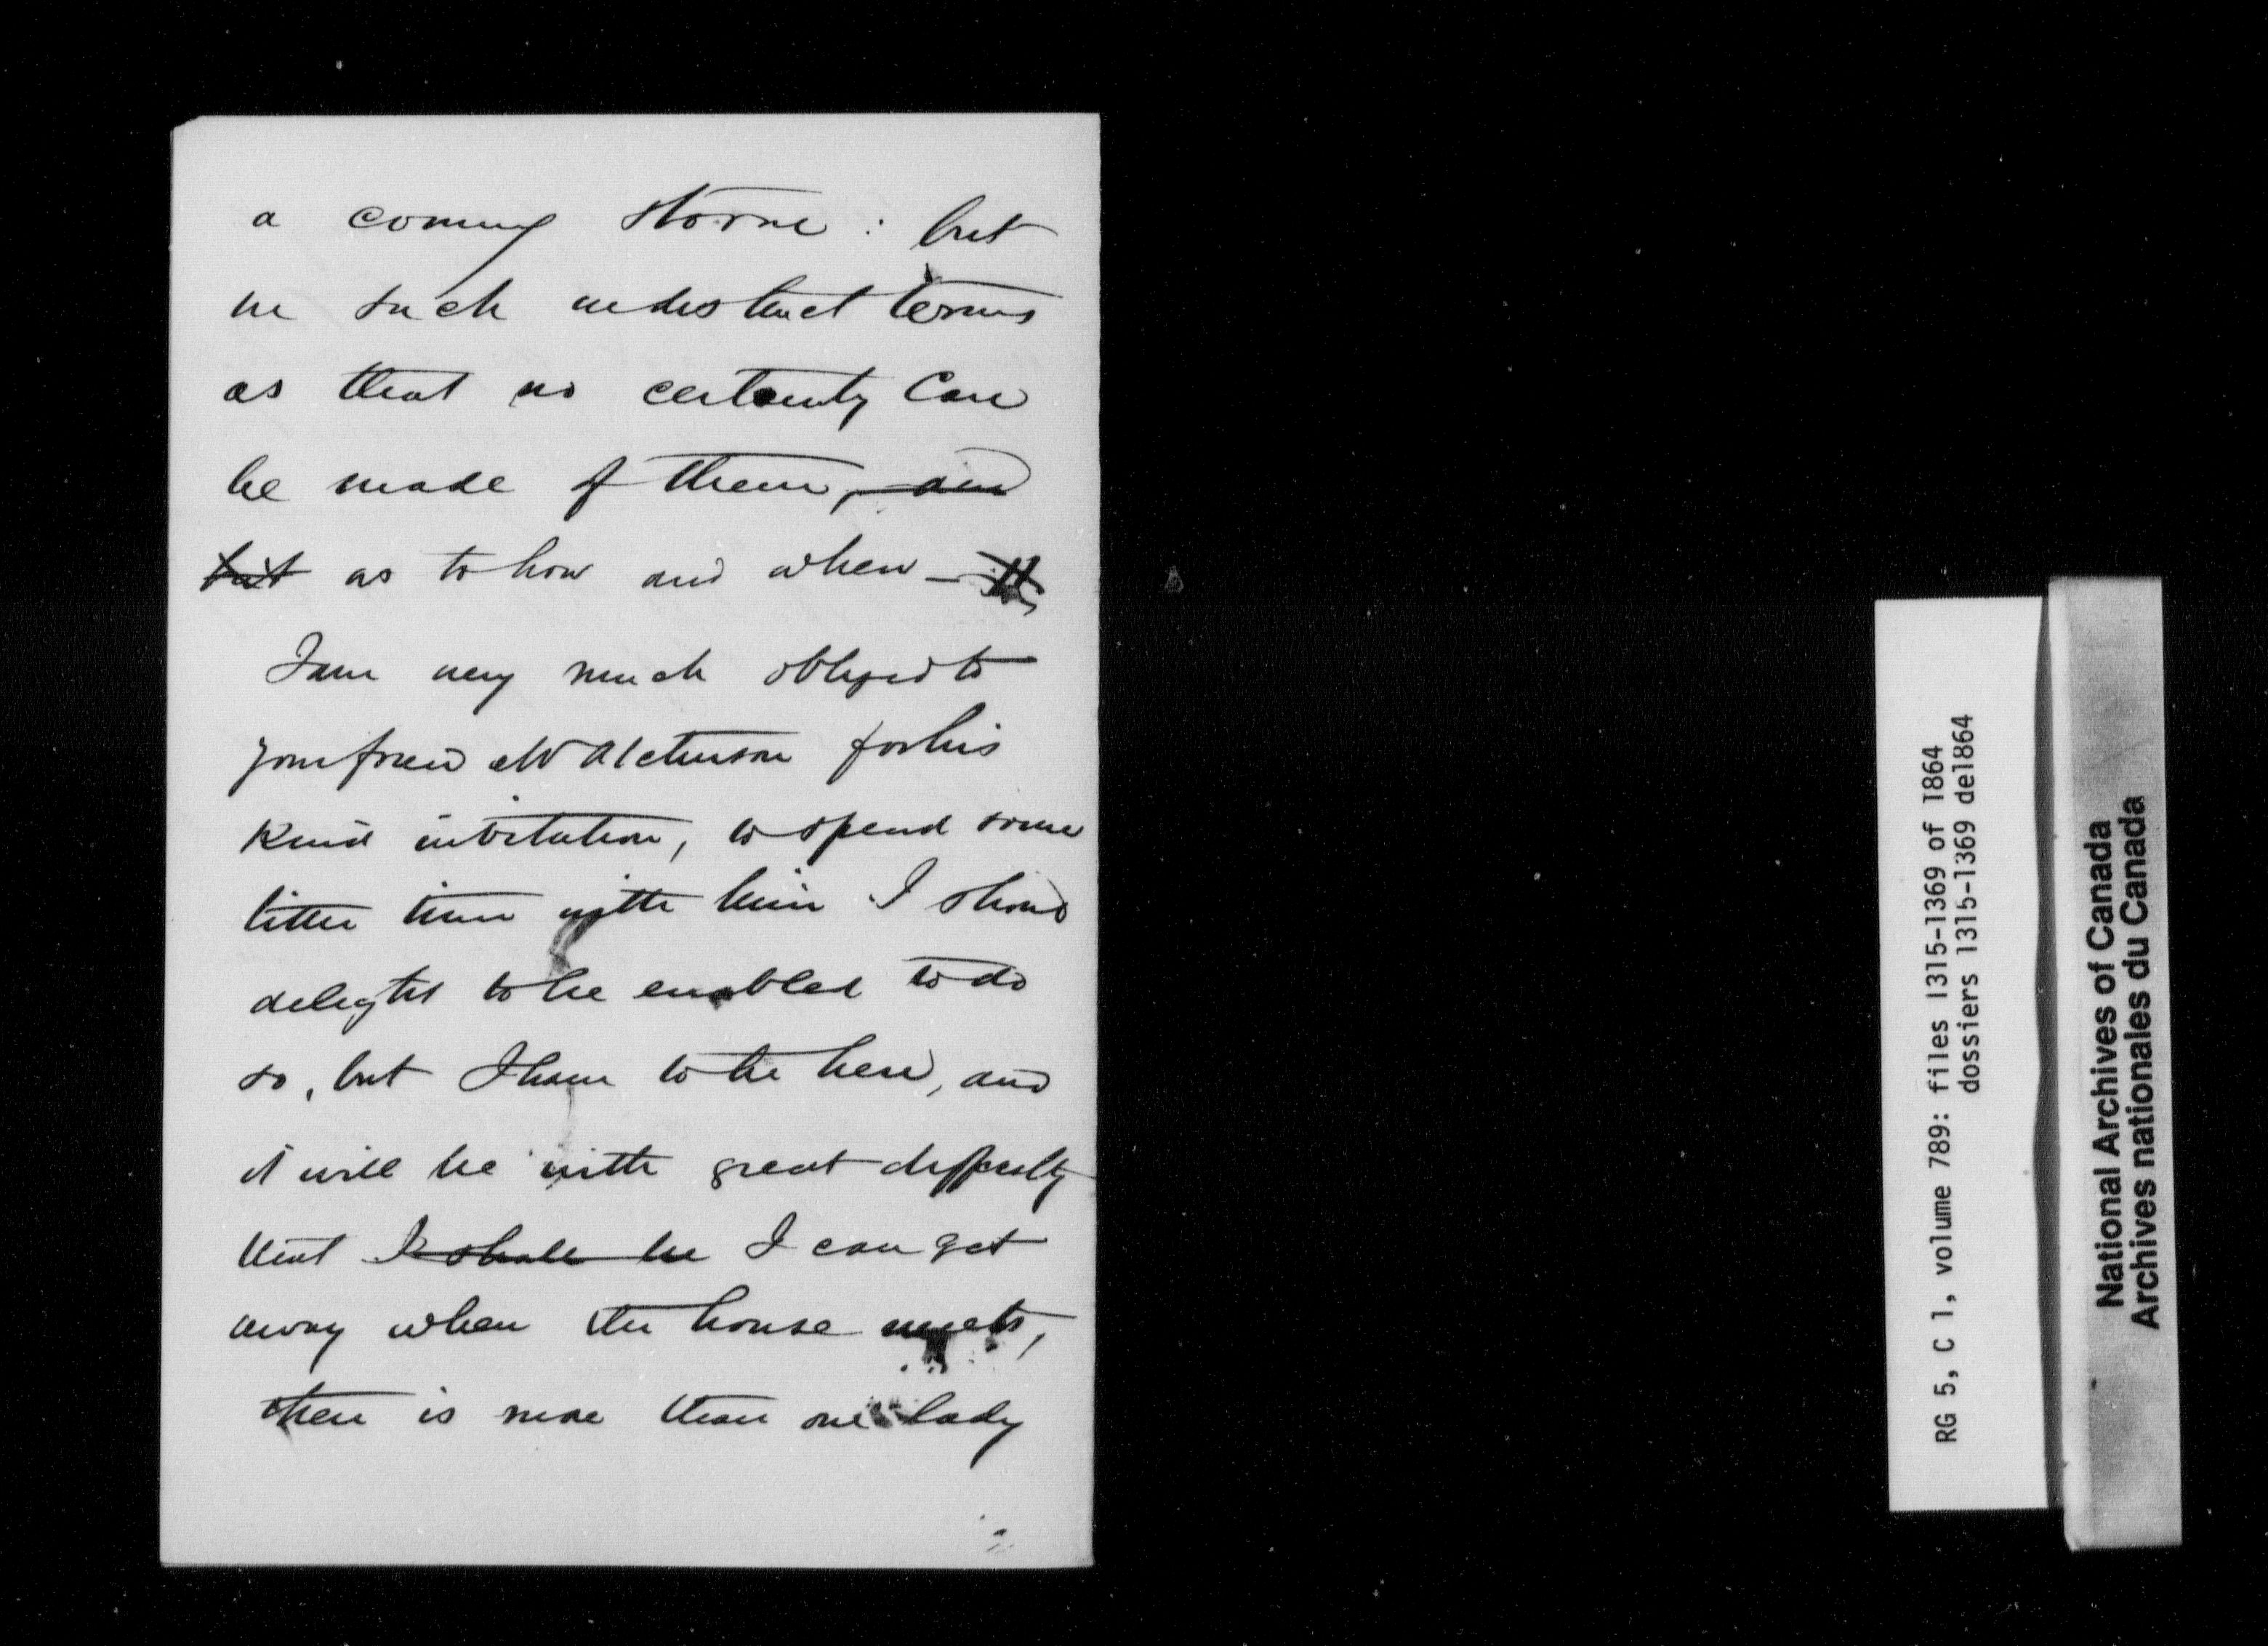 a coming storm : but
in such indistinct terms
as that no certainty can
be made of them, and
but as to how and when –
I am very much obliged to
your friend Mr Atchinson for his
kind invitation, to spend some
little time with him I should
delight to be enabled to do
so, but I have to be here, and
it will be with great difficulty
that I shall be I can get
away when the house meets,
there is more than one lady
RG 5, C 1, volume 789: files 1315-1369 of 1864
dossiers 1315-1369 de1864
National Archives of Canada
Archives nationales du Canada